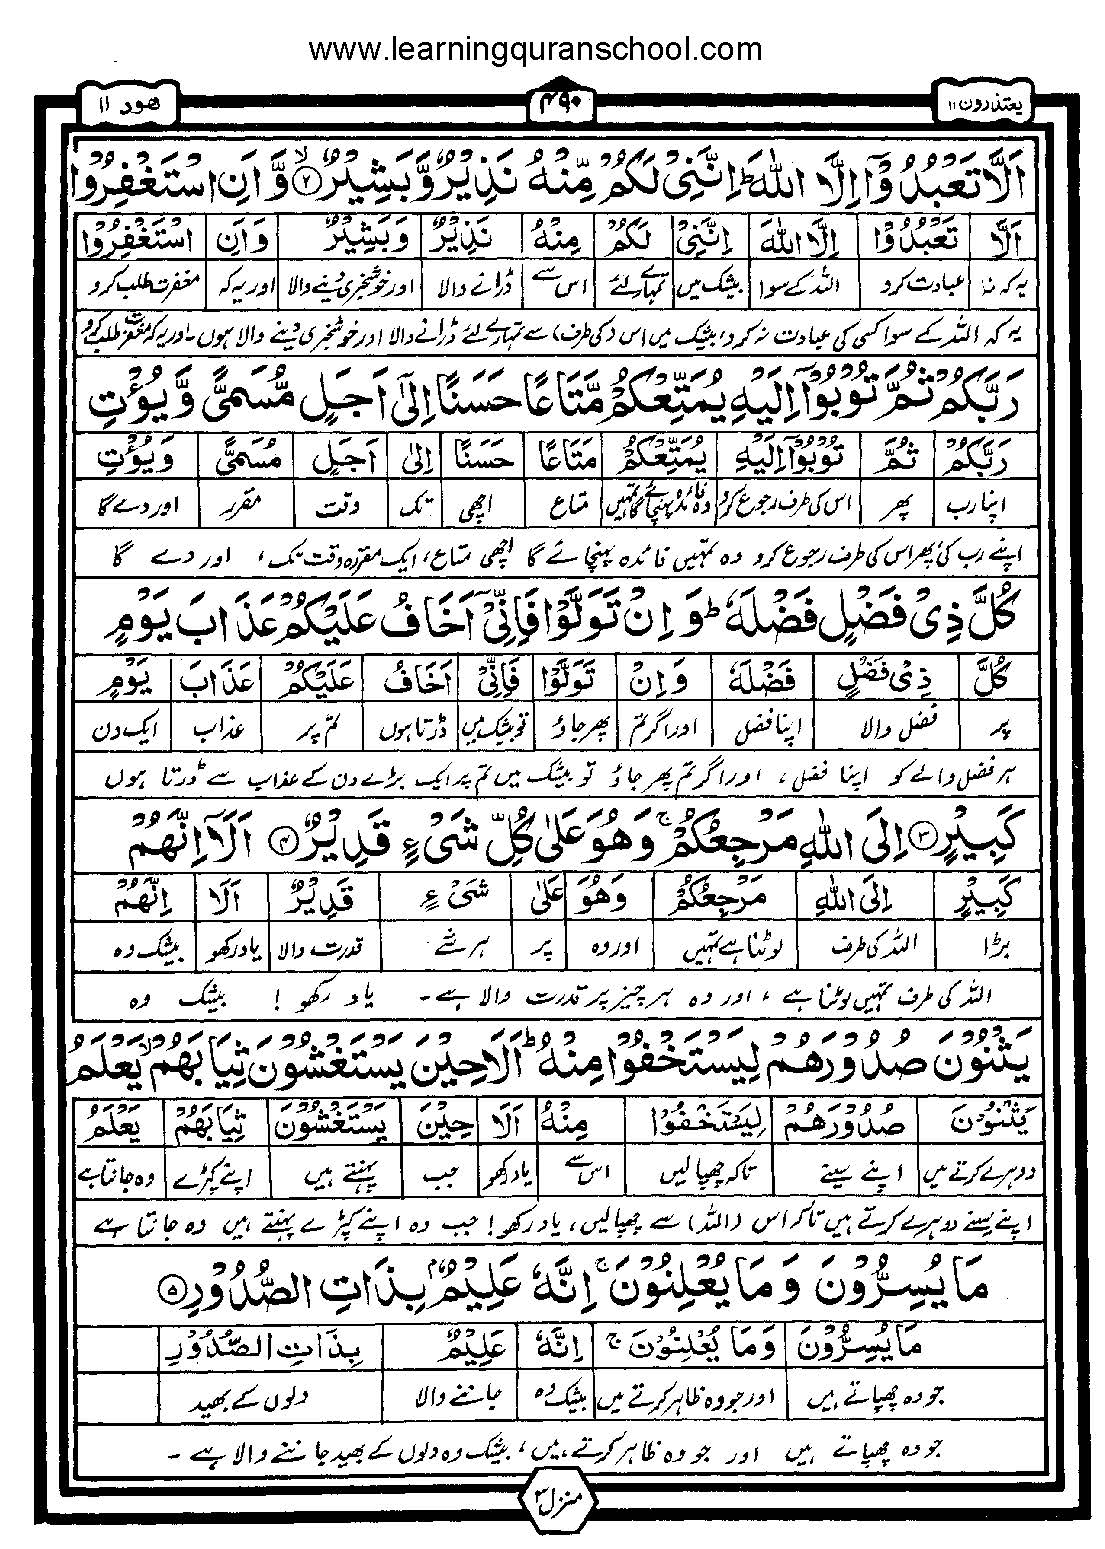 www.learningquranschool.com
یعتذرون ۱۱
۴۹۰
ھود ۱۱
اَلَّا تَعْبُدُوْۤا اِلَّا اللّٰهَ ؕ اِنَّنِیْ لَكُمْ مِّنْهُ نَذِیْرٌ وَّبَشِیْرٌ ۙ﴿۲﴾ وَّاَنِ اسْتَغْفِرُوْا
اَلَّا تَعْبُدُوْا اِلَّا اللّٰهَ اِنَّنِیْ لَكُمْ مِنْهُ نَذِیْرٌ وَبَشِیْرٌ وَاَنِ اسْتَغْفِرُوْا
یہ کہ نہ عبادت کرو اللہ کے سوا بیشک میں تمہارے لئے اس سے ڈرانے والا اور خوشخبری دینے والا اور یہ کہ مغفرت طلب کرو
یہ کہ اللہ کے سوا کسی کی عبادت نہ کرو، بیشک میں اس (کی طرف) سے تمہارے لئے ڈرانے والا اور خوشخبری دینے والا ہوں۔ اور یہ کہ مغفرت طلب کرو
رَبَّكُمْ ثُمَّ تُوْبُوْۤا اِلَیْهِ یُمَتِّعْكُمْ مَّتَاعًا حَسَنًا اِلٰۤی اَجَلٍ مُّسَمًّی وَّیُؤْتِ
رَبَّكُمْ ثُمَّ تُوْبُوْۤا اِلَیْهِ یُمَتِّعْكُمْ مَتَاعًا حَسَنًا اِلٰی اَجَلٍ مُسَمًّی وَیُؤْتِ
اپنا رب پھر اس کی طرف رجوع کرو وہ فائدہ پہنچائے گا تمہیں متاع اچھی تک وقت مقرر اور دے گا
اپنے رب کی، پھر اس کی طرف رجوع کرو وہ تمہیں فائدہ پہنچائے گا اچھی متاع، ایک مقررہ وقت تک، اور دے گا
كُلَّ ذِیْ فَضْلٍ فَضْلَهٗ ؕ وَاِنْ تَوَلَّوْا فَاِنِّیْۤ اَخَافُ عَلَیْكُمْ عَذَابَ یَوْمٍ
كُلَّ ذِیْ فَضْلٍ فَضْلَهٗ وَاِنْ تَوَلَّوْا فَاِنِّیْۤ اَخَافُ عَلَیْكُمْ عَذَابَ یَوْمٍ
ہر فضل والا اپنا فضل اور اگر تم پھر جاؤ تو بیشک میں ڈرتا ہوں تم پر عذاب ایک دن
ہر فضل والے کو اپنا فضل، اور اگر تم پھر جاؤ تو بیشک میں تم پر ایک بڑے دن کے عذاب سے ڈرتا ہوں
كَبِیْرٍ ﴿۳﴾ اِلَی اللّٰهِ مَرْجِعُكُمْ ۚ وَهُوَ عَلٰی كُلِّ شَیْءٍ قَدِیْرٌ ﴿۴﴾ اَلَاۤ اِنَّهُمْ
كَبِیْرٍ اِلَی اللّٰهِ مَرْجِعُكُمْ وَهُوَ عَلٰی شَیْءٍ قَدِیْرٌ اَلَا اِنَّهُمْ
بڑا اللہ کی طرف لوٹنا ہے تمہیں اور وہ پر ہر شے قدرت والا یاد رکھو بیشک وہ
اللہ کی طرف تمہیں لوٹنا ہے، اور وہ ہر چیز پر قدرت والا ہے۔ یاد رکھو! بیشک وہ
یَثْنُوْنَ صُدُوْرَهُمْ لِیَسْتَخْفُوْا مِنْهُ ؕ اَلَا حِیْنَ یَسْتَغْشُوْنَ ثِیَابَهُمْ ۙ یَعْلَمُ
یَثْنُوْنَ صُدُوْرَهُمْ لِیَسْتَخْفُوْا مِنْهُ اَلَا حِیْنَ یَسْتَغْشُوْنَ ثِیَابَهُمْ یَعْلَمُ
دوہرے کرتے ہیں اپنے سینے تاکہ چھپالیں اس سے یاد رکھو جب پہنتے ہیں اپنے کپڑے وہ جانتا ہے
اپنے سینے دوہرے کرتے ہیں تاکہ اس (اللہ) سے چھپالیں، یاد رکھو! جب وہ اپنے کپڑے پہنتے ہیں وہ جانتا ہے
مَا یُسِرُّوْنَ وَمَا یُعْلِنُوْنَ ۚ اِنَّهٗ عَلِیْمٌۢ بِذَاتِ الصُّدُوْرِ ﴿۵﴾
مَا یُسِرُّوْنَ وَمَا یُعْلِنُوْنَ ۚ اِنَّهٗ عَلِیْمٌ بِذَاتِ الصُّدُوْرِ
جو وہ چھپاتے ہیں اور جو وہ ظاہر کرتے ہیں بیشک وہ جاننے والا دلوں کے بھید
جو وہ چھپاتے ہیں اور جو وہ ظاہر کرتے ہیں، بیشک وہ دلوں کے بھید جاننے والا ہے۔
منزل ۳